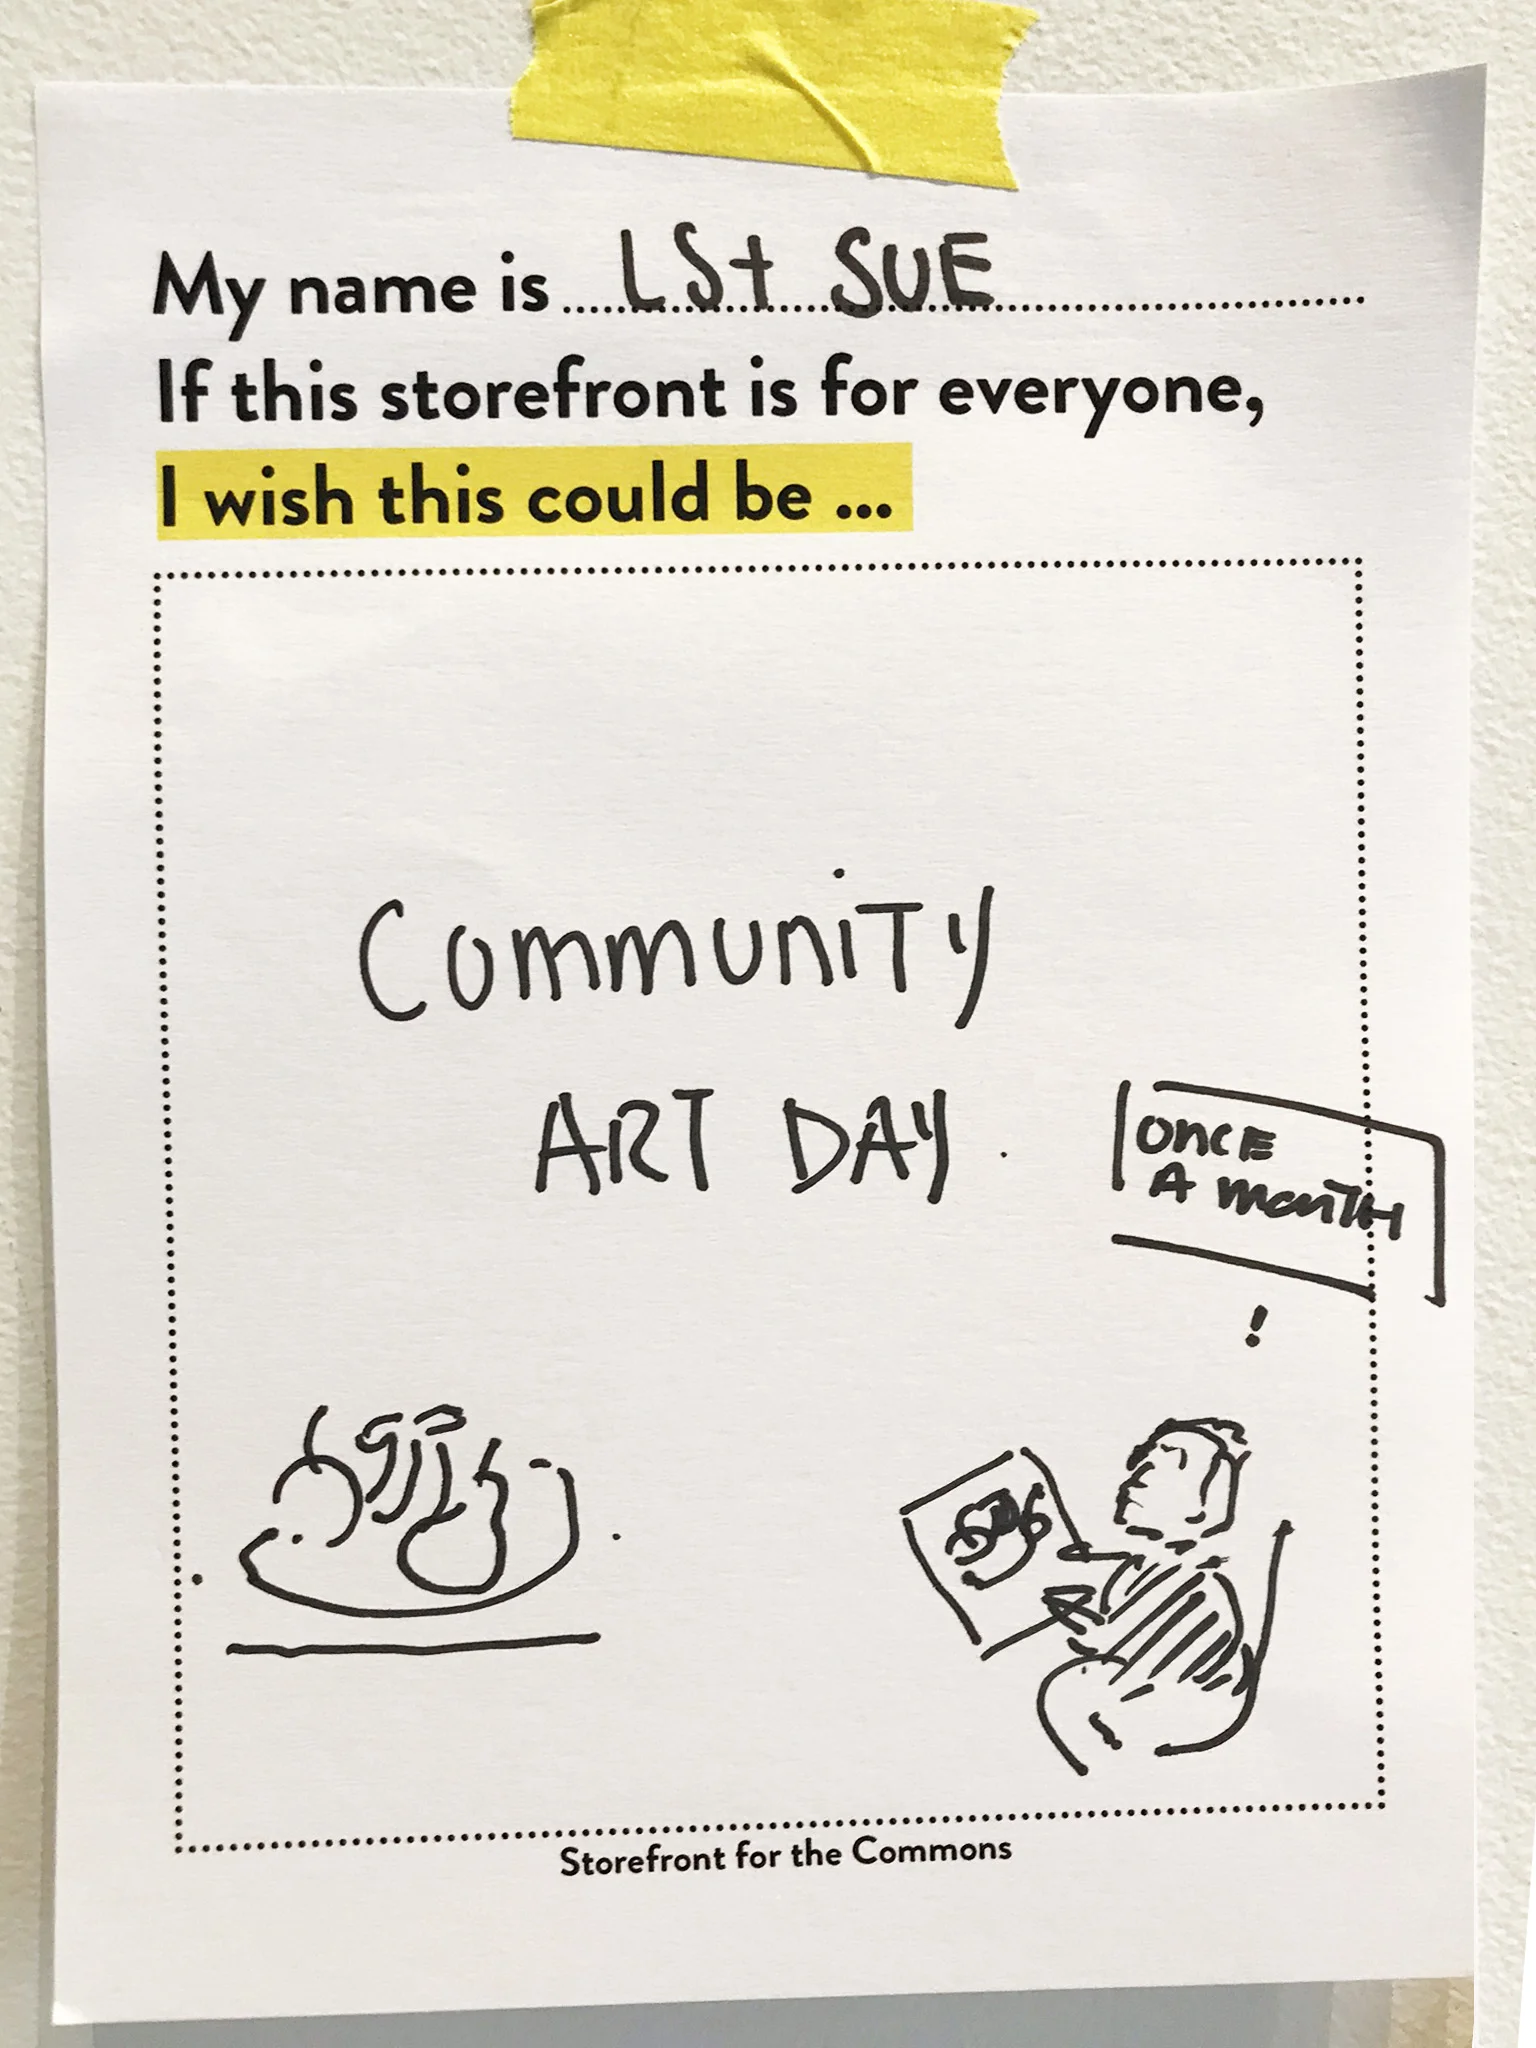 My name is LSt SUE
If this storefront is for everyone,
I wish this could be ...
COmmUniTy
ART DAY.
OnCE
A mOnTH
!
Storefront for the Commons